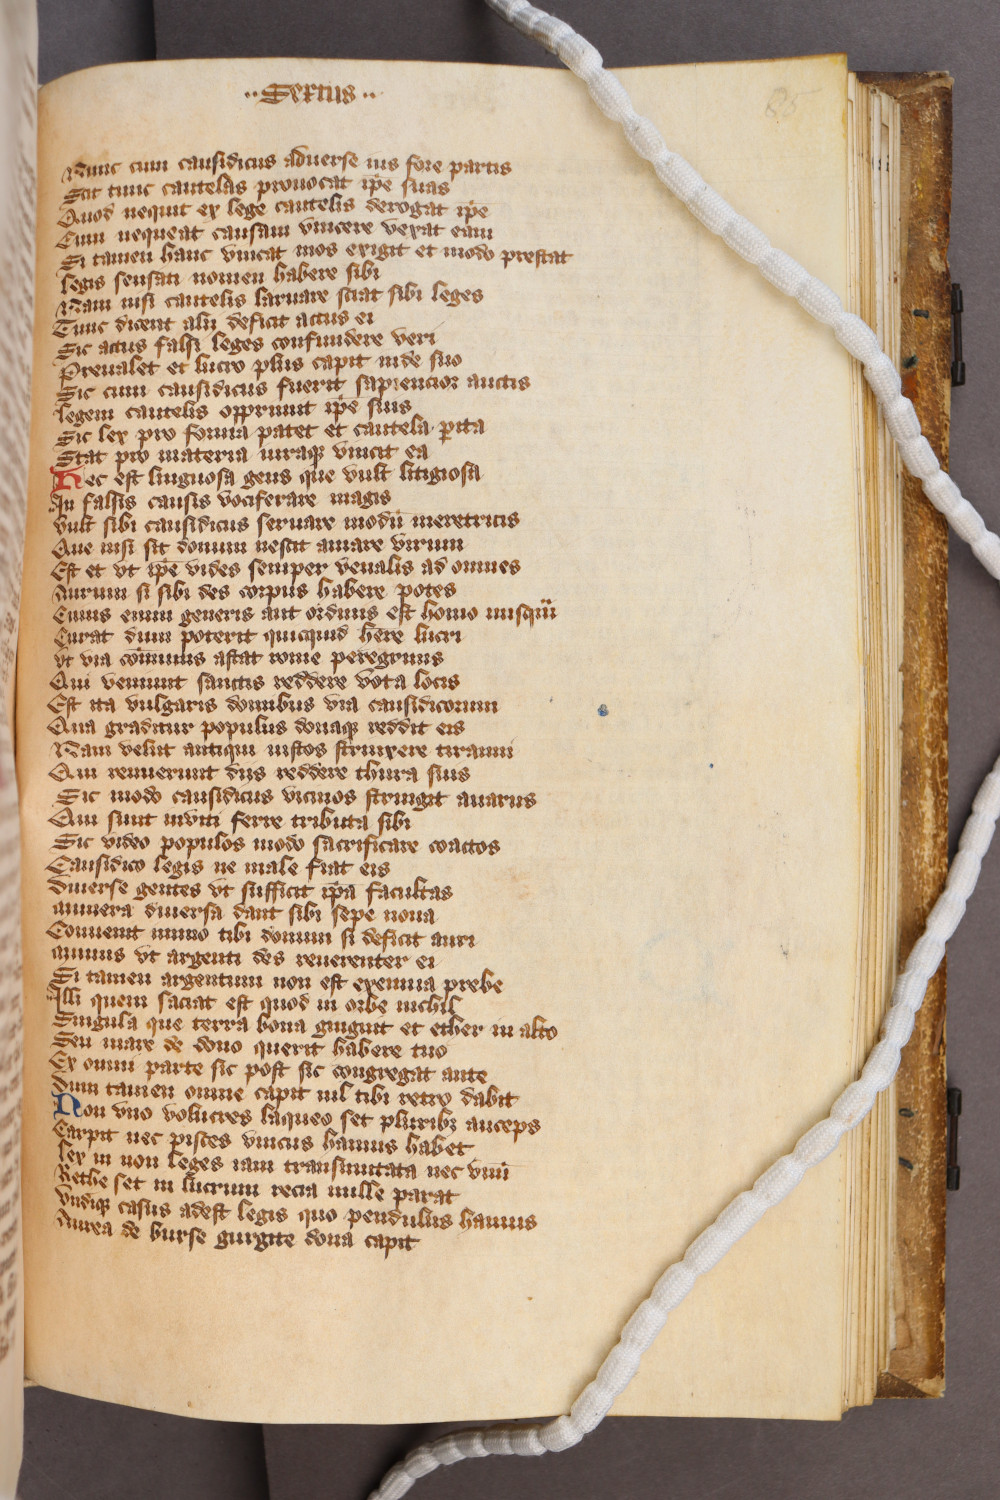 ··Sextus··
85
Nunc cum causidicus aduerse ius fore partis
Scit tunc cautelas prouocat ip̄e suas
Quod nequit ex lege cautelis derogat ip̄e
Cum nequeat causam vincere vexat eam
Si tamen hanc vincat mos exigit et modo prestat
legis sensati nomen habere sibi
Nam nisi cautelis laruare sciat sibi leges
Tunc dicent alii deficit actus ei
Sic actus falsi leges confundere veri
Preualet et lucro plus capit inde suo
Sic cum causidicus fuerit sapiencior auctis
legem cautelis opprimit ip̄e suis
Sic lex pro forma patet et cautela ꝑita
Stat pro materia iuraqꝫ vincit ea
Hec est linguosa gens que vult litigiosa
In falsis causis vociferare magis
vult sibi causidicus seruare modū meretricis
Que nisi sit donum nescit amare virum
Est et vt ip̄e vides semper venalis ad omnes
Aurum si sibi des corpus habere potes
Cuius enim generis aut ordinis est homo nusqͣm
Curat dum poterit quicquid hēre lucri
vt via cōmunis astat rome peregrinus
Qui veniunt sanctis reddere vota locis
Est ita vulgaris domibus via causidicorum
Qua graditur populus donaqꝫ reddit eis
Nam velut antiqui iustos strinxere tiranni
Qui renuerunt diis reddere thura suis
Sic modo causidicus vicinos stringit auarus
Qui sunt inuiti ferre tributa sibi
Sic video populos modo sacrificare coactos
Causidico legis ne male fiat eis
diuerse gentes vt sufficit ip̄a facultas
munera diuersa dant sibi sepe noua
Conuenit immo tibi donum si deficit auri
munus vt argenti des reuerenter ei
Si tamen argentum non est exennia prebe
Illi quem saciat est quod in orbe nichil
Singula que terra bona gingnit et ether in alto
Seu mare de dono querit habere tuo
Ex omni parte sic post sic congregat ante
dum tamen omne capit nil tibi retro dabit
Non vno volucres laqueo set pluribꝫ auceps
Carpit nec pisces vnicus hamus habet
lex in non leges iam transmutata nec vnū
Rethe set in lucrum recia mille parat
vndiqꝫ casus adest legis quo pendulus hamus
Aurea de burse gurgite dona capit